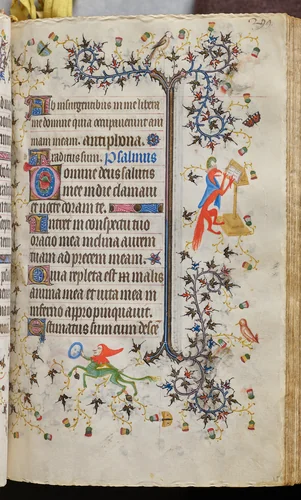 Ab insurgentibus in me libera
me domine quia comprehenderunt ani
mam meam. antiphona.
Traditus sum. Psalmus
Domine deus salutis
mee in die clamavi
et nocte coram te.
Intret in conspectu tuo
oracio mea inclina aurem
tuam ad precem meam.
Quia repleta est malis
anima mea et vita mea in
inferno appropinquavit.
Estimatus sum cum desce